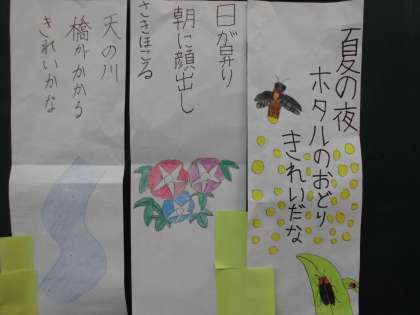 夏の夜
ホタルのおどり
きれいだな
日が昇り
朝に顔出し
さきほこる
天の川
橋がかかる
きれいかな